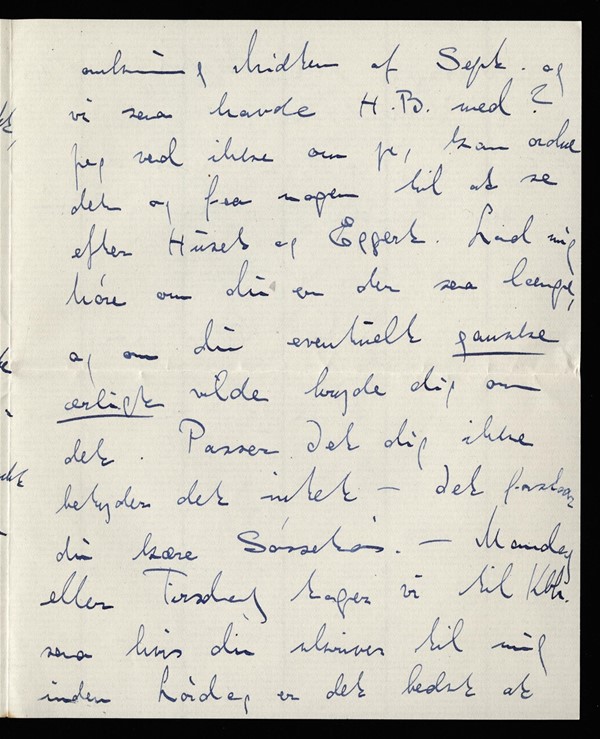 omkring Midten af Sept. og
vi saa havde H.B. med?
jeg ved ikke om jeg kan ordne
det og faa nogen til at se
efter Huset og Eggert. Lad mig
høre om du er der saa længe,
og om du eventuelt ganske
ærligt vilde bryde dig om
det. Passer det dig ikke
betyder det intet – det forstaar
du kære – Mandag
eller Tirsdag tager vi til Kbh.
saa hvis du skriver til mig
inden Lørdag er det bedst at